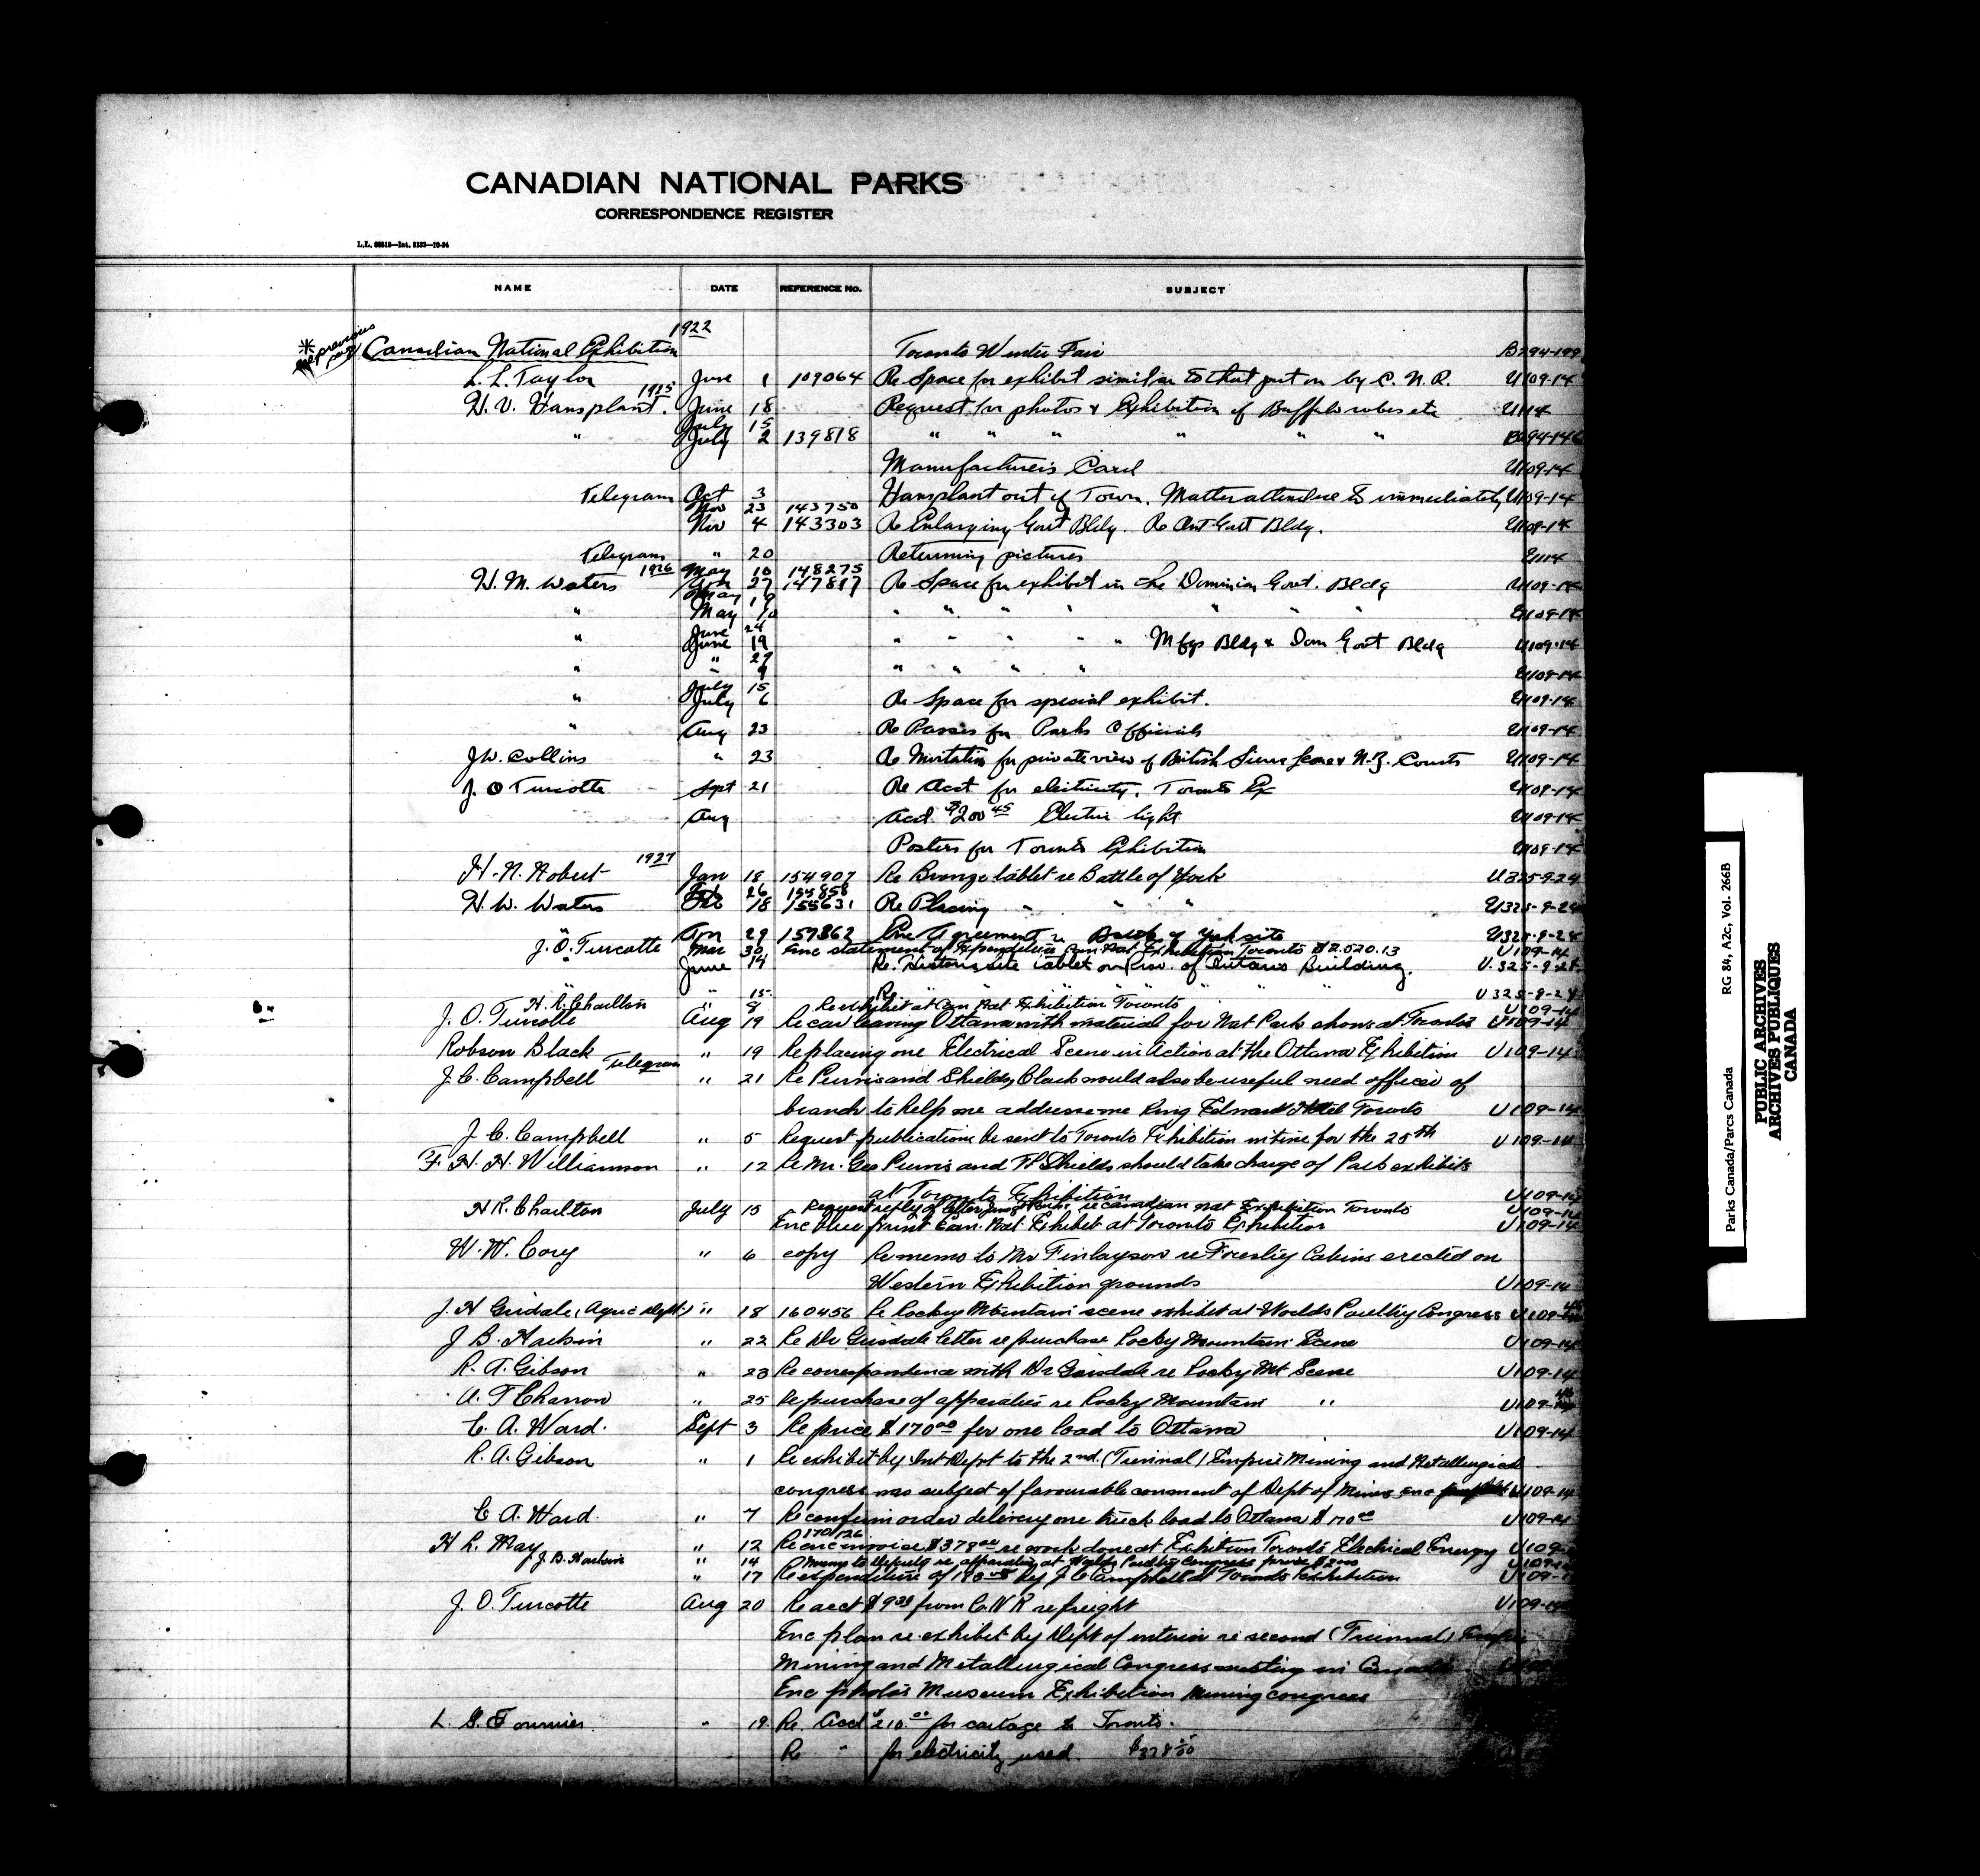 CANADIAN NATIONAL PARKS
CORRESPONDENCE REGISTER
NAME DATE REFERENCE No. SUBJECT
1922
* see previous page Canadian National Exhibition Toronto Winter Fair B294-199
L. L. Taylor June 1 109064 Re Space for exhibit similar to that put on by C. N. R. U109-14
1925
H. V. Hansplant. June 18 Request for photos & Exhibition of Buffalo robes etc U114
July 15
" July 2 139818 " " " " " " B294-146
Manufacturers Card U109-14
Telegram Oct 3 Hansplant out of Town. Matter attended to immediately U109-14
Nov 23 143750
Nov 4 143303 Re Enlarging Govt Bldg. Re Ont Govt Bldg. U109-14
Telegram " 20 Returning pictures U114
1926 May 10 148275
H. M. Waters Apr 27 147817 Re Space for exhibit in the Dominion Govt. Bldg U109-14
May 19
" May 10 " " " " " " " U109-14
June 24
" June 19 " " " " " Mfgs Bldg & Dom Govt Bldg U109-14
" 29
" " 9 " " " " U109-14
July 15
" July 6 Re Space for special exhibit. U109-14
" Aug 23 Re Passes for Parks Officials U109-14
J W. Collins " 23 Re Invitation for private view of British & N.Z. Courts U109-14
J. O Turcotte Sept 21 Re Acct for electricity. Toronto Ex U109-14
Aug Acct $200 45 Electric light U109-14
Posters for Toronto Exhibition U109-14
1927
H. N. Robert Jan 18 154907 Re Bronze tablet re Battle of York U325-9-24
Feb 26 155858
H. W. Waters Feb 18 155631 Re Placing " " " U325-9-24
" Apr 29 157862 Enc Agreement re Battle of York site U325-9-24
J. O. Turcotte Mar 30 Enc statement of Expenditure Can. Nat Exhibition Toronto $2.520.13 U109-14
" June 14 Re. Historic site tablet on Prov. of Ontario Building. U.325-9-24
" " 15 Re " " " " " " U325-9-24
H. R. Charlton " 8 Re exhibit at Can Nat Exhibition Toronto U109-14
J. O. Turcotte Aug 19 Re car leaving Ottawa with material for Nat Park shows at Toronto U109-14
Robson Black " 19 Re placing one Electrical Scene in Action at the Ottawa Exhibition U109-14
Telegram
J. C. Campbell " 21 Re Purvis and Shields Clark would also be useful need officer of
branch to help me address me King Edward Hotel Toronto U109-14
J. C. Campbell " 5 Request publications be sent to Toronto Exhibition in time for the 25th U109-14
F. H. H. Williamson " 12 Re Mr. Geo Purvis and Shields should take charge of Park exhibits
at Toronto Exhibition U109-14
H R. Charlton July 15 Request reply of letter re Canadian Nat Exhibition Toronto U109-14
Enc blue print Can. Nat. Exhibit at Toronto Exhibition U109-14
W. W. Cory " 6 copy Re memo to Mr Finlayson re Forestry Cabins erected on
Western Exhibition grounds U109-14
J. H Grisdale (Agric Dept.) " 18 160456 Re Rocky Mountain scene exhibit at Worlds Poultry Congress U109-
J B. Harkin " 22 Re Dr Grisdale letter re purchase Rocky Mountain Scene U109-14
R. A. Gibson " 23 Re correspondence with Dr Grisdale re Rocky Mt Scene U109-14
A. T Charron " 25 Re purchase of apparatus re Rocky Mountain " U109-
C. A. Ward. Sept 3 Re price $170 00 for one load to Ottawa U109-14
R. A. Gibson " 1 Re exhibit by Int Dept to the 2nd. (Triennial) Empire Mining and Metallurgical
congress was subject of favourable comment of Dept of Mines enc U109-14
C A. Ward. " 7 Re confirm order delivery one truck load to Ottawa $170 00 U109-14
170126
H L. May " 12 Re enc invoice $378 00 re work done at Exhibition Toronto Electrical Energy U109-
J. B. Harkin " 14 Re Memo to Deputy re apparatus at Worlds Poultry Congress U109-14
" 17 Re expenditure of by J C Campbell at Toronto Exhibition U109-1
J. O. Turcotte Aug 20 Re acct from C. N R re freight U109-14
Enc plan re exhibit by Dept of interior re second (Triennial) Empire
Mining and Metallurgical Congress meeting in Canada
Enc photos Museum Exhibition Mining congress
L. G. Fournier " 19 Re. Acct $210.00 for cartage to Toronto.
Re " for electricity used. $378 00
PUBLIC ARCHIVES
ARCHIVES PUBLIQUES
CANADA
Parks Canada/Parcs Canada RG 84, A2c, Vol. 266B